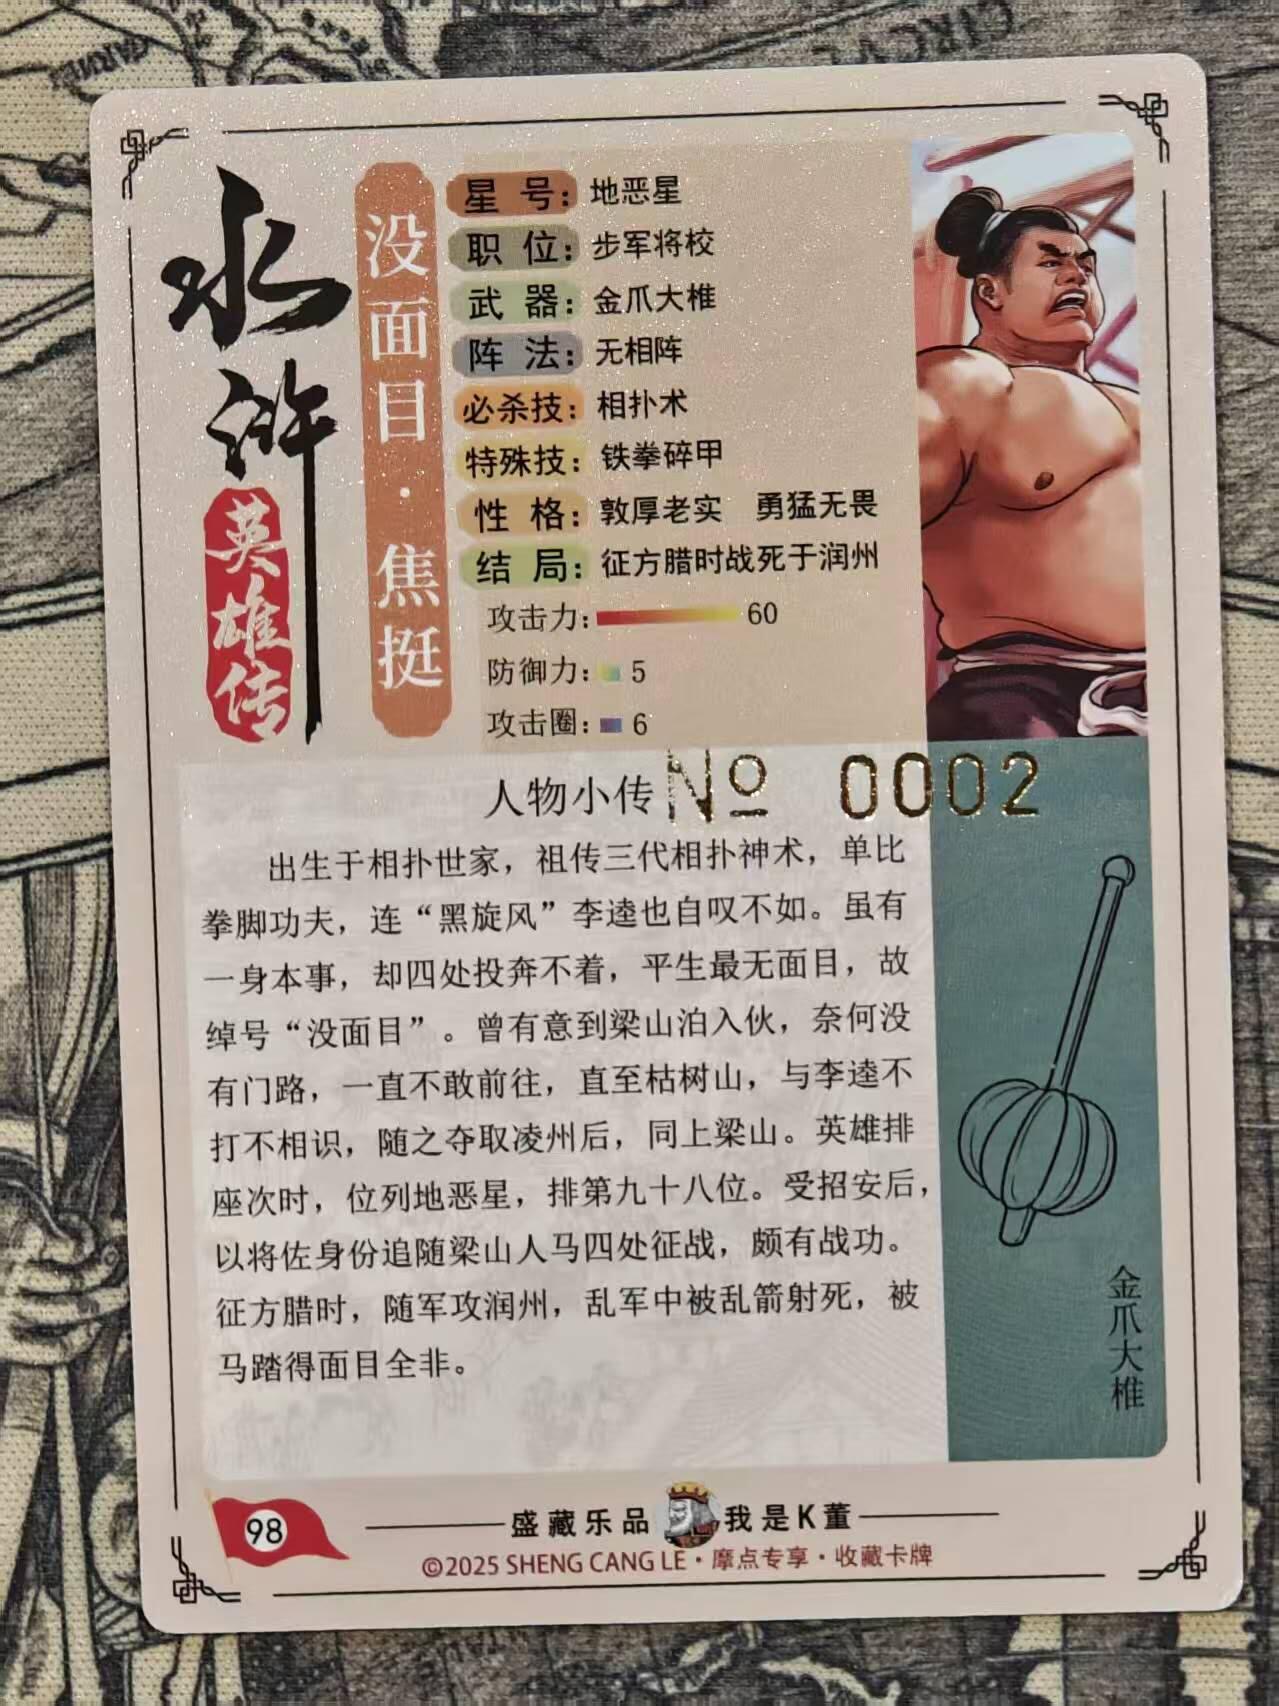 水浒
英雄传
没面目·焦挺
星号：地恶星
职位：步军将校
武器：金爪大椎
阵法：无相阵
必杀技：相扑术
特殊技：铁拳碎甲
性格：敦厚老实 勇猛无畏
结局：征方腊时战死于润州
攻击力：60
防御力：5
攻击圈：6
人物小传
№ 0002
出生于相扑世家，祖传三代相扑神术，单比
拳脚功夫，连“黑旋风”李逵也自叹不如。虽有
一身本事，却四处投奔不着，平生最无面目，故
绰号“没面目”。曾有意到梁山泊入伙，奈何没
有门路，一直不敢前往，直至枯树山，与李逵不
打不相识，随之夺取凌州后，同上梁山。英雄排
座次时，位列地恶星，排第九十八位。受招安后，
以将佐身份追随梁山人马四处征战，颇有战功。
征方腊时，随军攻润州，乱军中被乱箭射死，被
马踏得面目全非。
金爪大椎
98
盛藏乐品 我是K董
©2025 SHENG CANG LE·摩点专享·收藏卡牌